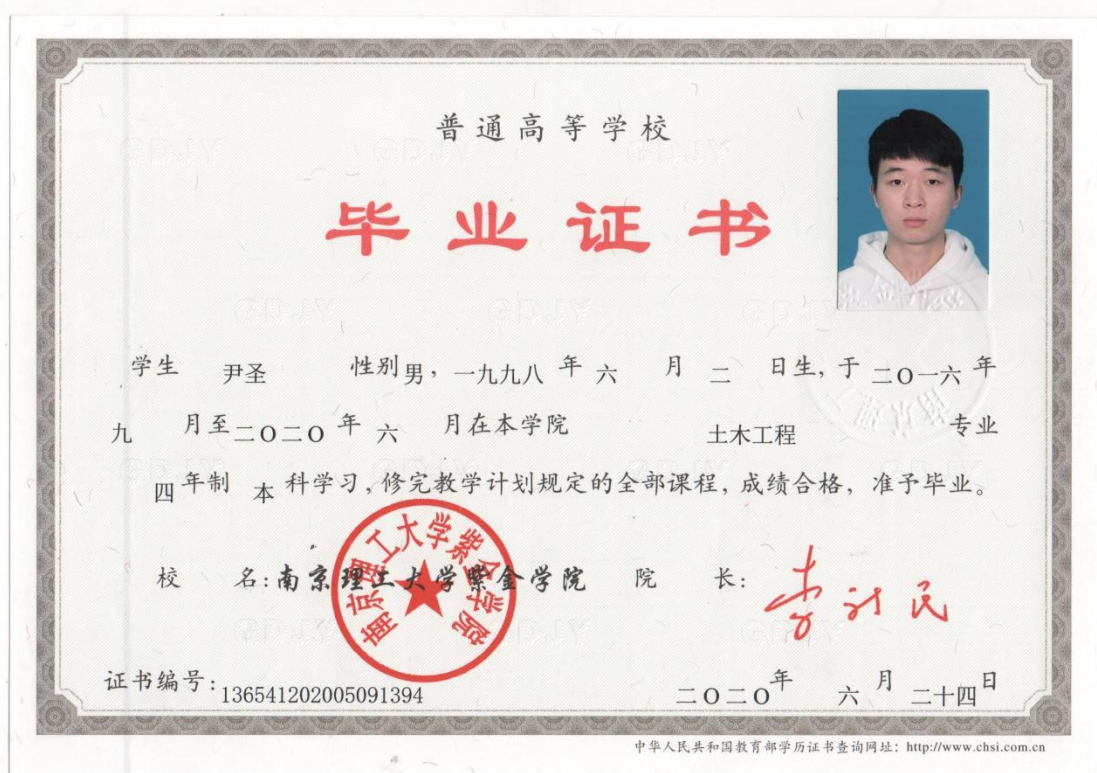 普通高等学校
毕业证书
学生 尹圣 性别男，一九九八年六月二日生，于二〇一六年
九月至二〇二〇年六月在本学院 土木工程 专业
四年制 本科学习，修完教学计划规定的全部课程，成绩合格，准予毕业。
校 名：南京理工大学紫金学院 院 长：李诗民
南京理工大学紫金学院
证书编号：136541202005091394 二〇二〇年六月二十四日
中华人民共和国教育部学历证书查询网址：http://www.chsi.com.cn